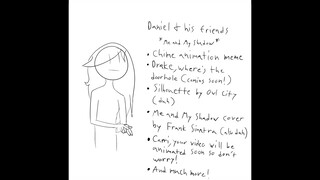 Daniel & his friends
*Me and My Shadow*
• Chine animation meme
• Drake, where's the
doorhole (coming soon!)
• Silhouette by Owl City
(duh)
• Me and My Shadow cover
by Frank Sinatra (also duh)
• Cam, your video will be
animated soon so don't
worry!
• And much more!